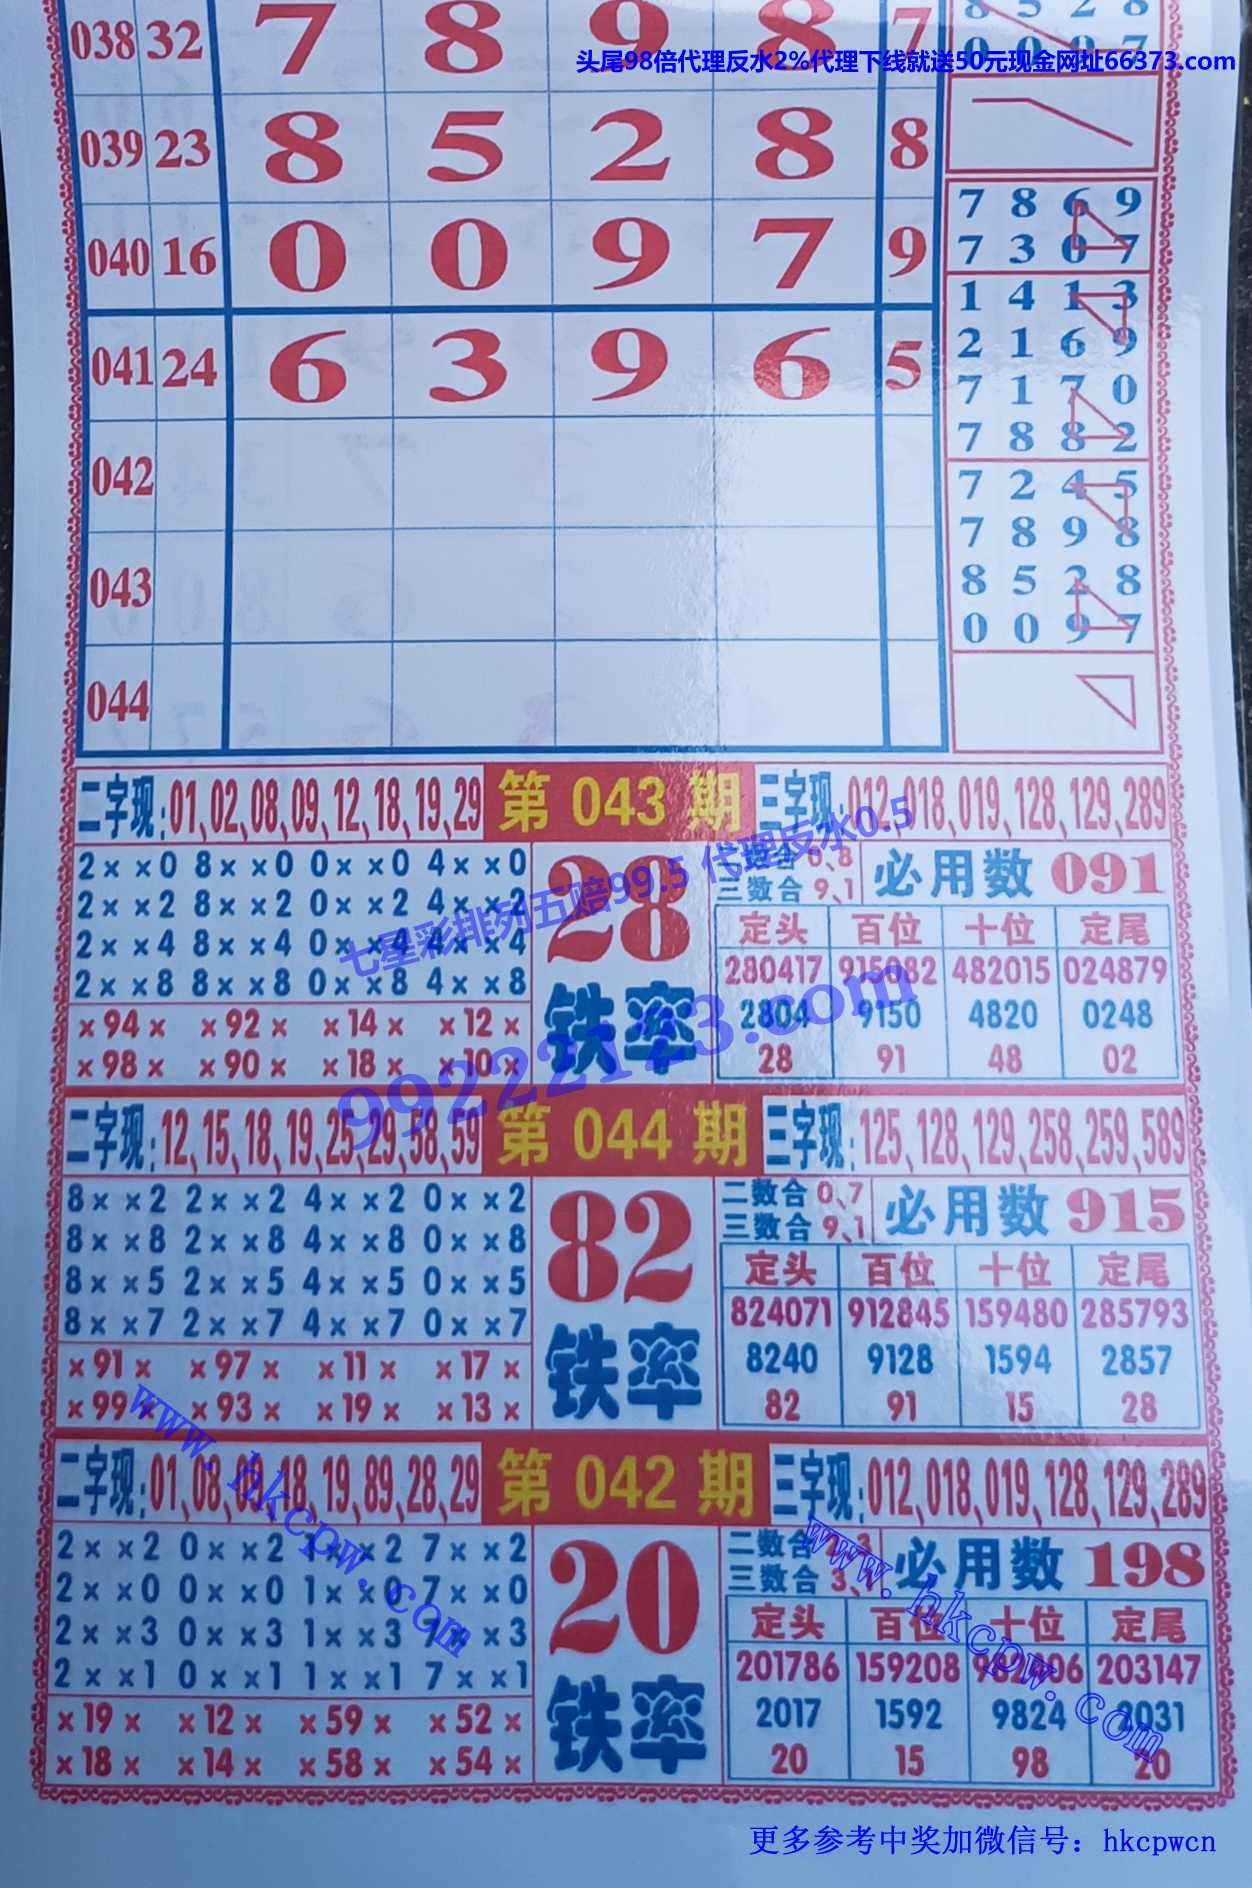 038 32 7 8 9 8 7
8 5 2 8
0 0 9 7
头尾98倍代理反水2%代理下线就送50元现金网址66373.com
039 23 8 5 2 8 8
040 16 0 0 9 7 9
7 8 6 9
7 3 0 7
041 24 6 3 9 6 5
1 4 1 3
2 1 6 9
7 1 7 0
7 8 8 2
042
7 2 4 5
7 8 9 8
043
8 5 2 8
0 0 9 7
044
二字现:01,02,08,09,12,18,19,29 第 043 期 三字现:012,018,019,128,129,289
2××0 8××0 0××0 4××0
2××2 8××2 0××2 4××2
2××4 8××4 0××4 4××4
2××8 8××8 0××8 4××8
×94× ×92× ×14× ×12×
×98× ×90× ×18× ×10×
28
铁率
二数合 0,8
三数合 9,1
必用数 091
定头 百位 十位 定尾
280417 915082 482015 024879
2804 9150 4820 0248
28 91 48 02
七星彩排列五赔99.5 代理反水0.5
99222123.com
二字现:12,15,18,19,25,29,58,59 第 044 期 三字现:125,128,129,258,259,589
8××2 2××2 4××2 0××2
8××8 2××8 4××8 0××8
8××5 2××5 4××5 0××5
8××7 2××7 4××7 0××7
×91× ×97× ×11× ×17×
×99× ×93× ×19× ×13×
82
铁率
二数合 0、7
三数合 9、1
必用数 915
定头 百位 十位 定尾
824071 912845 159480 285793
8240 9128 1594 2857
82 91 15 28
www.hkcpw.com
二字现:01,08, 18,19,89,28,29 第 042 期 三字现:012,018,019,128,129,289
2××2 0××2 1××2 7××2
2××0 0××0 1××0 7××0
2××3 0××3 1××3 7××3
2××1 0××1 1××1 7××1
×19× ×12× ×59× ×52×
×18× ×14× ×58× ×54×
20
铁率
二数合
三数合 3
必用数 198
定头 百位 十位 定尾
201786 159208 203147
2017 1592 9824 2031
20 15 98 20
www.hkcpw.com
更多参考中奖加微信号：hkcpwcn